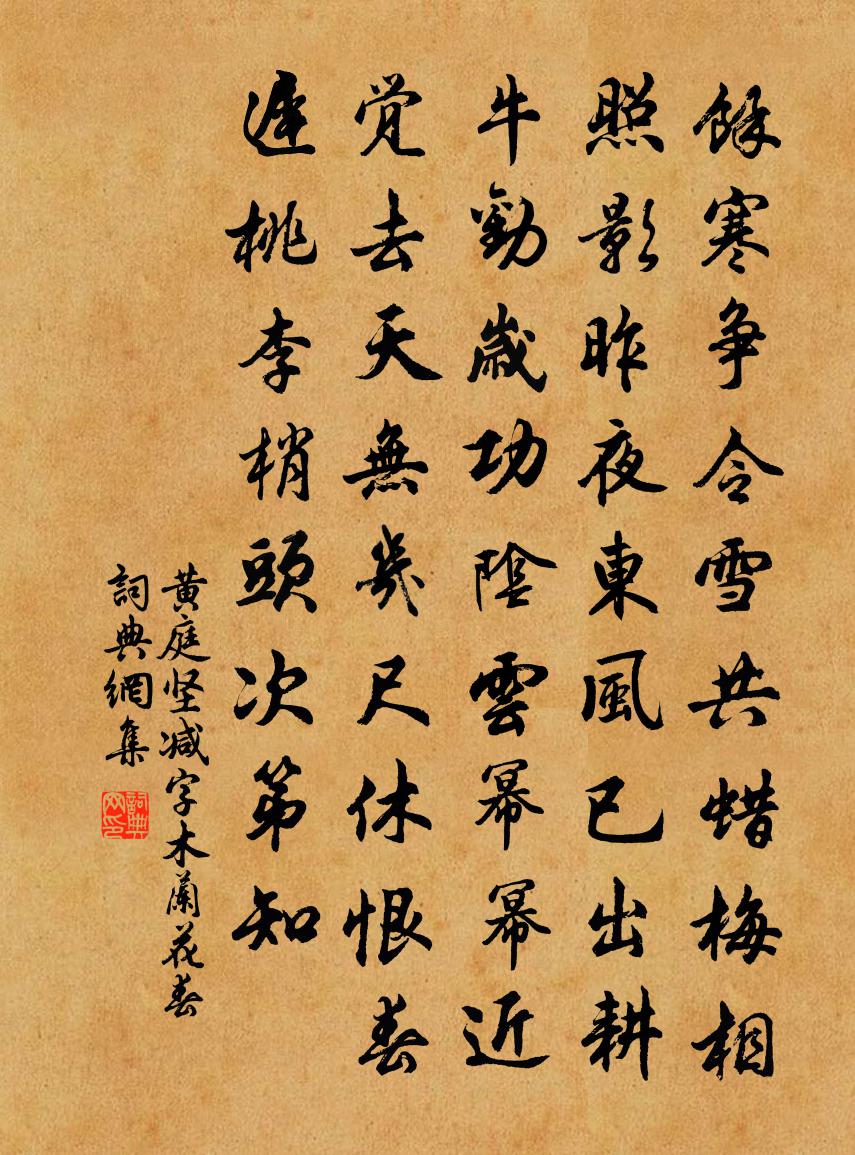 餘寒争令雪共蜡梅相
照影昨夜東風已出耕
牛勸歲功陰雲幂幂近
觉去天無幾尺休恨春
遲桃李梢頭次第知
黄庭坚减字木蘭花春
詞典網集
詞典网印